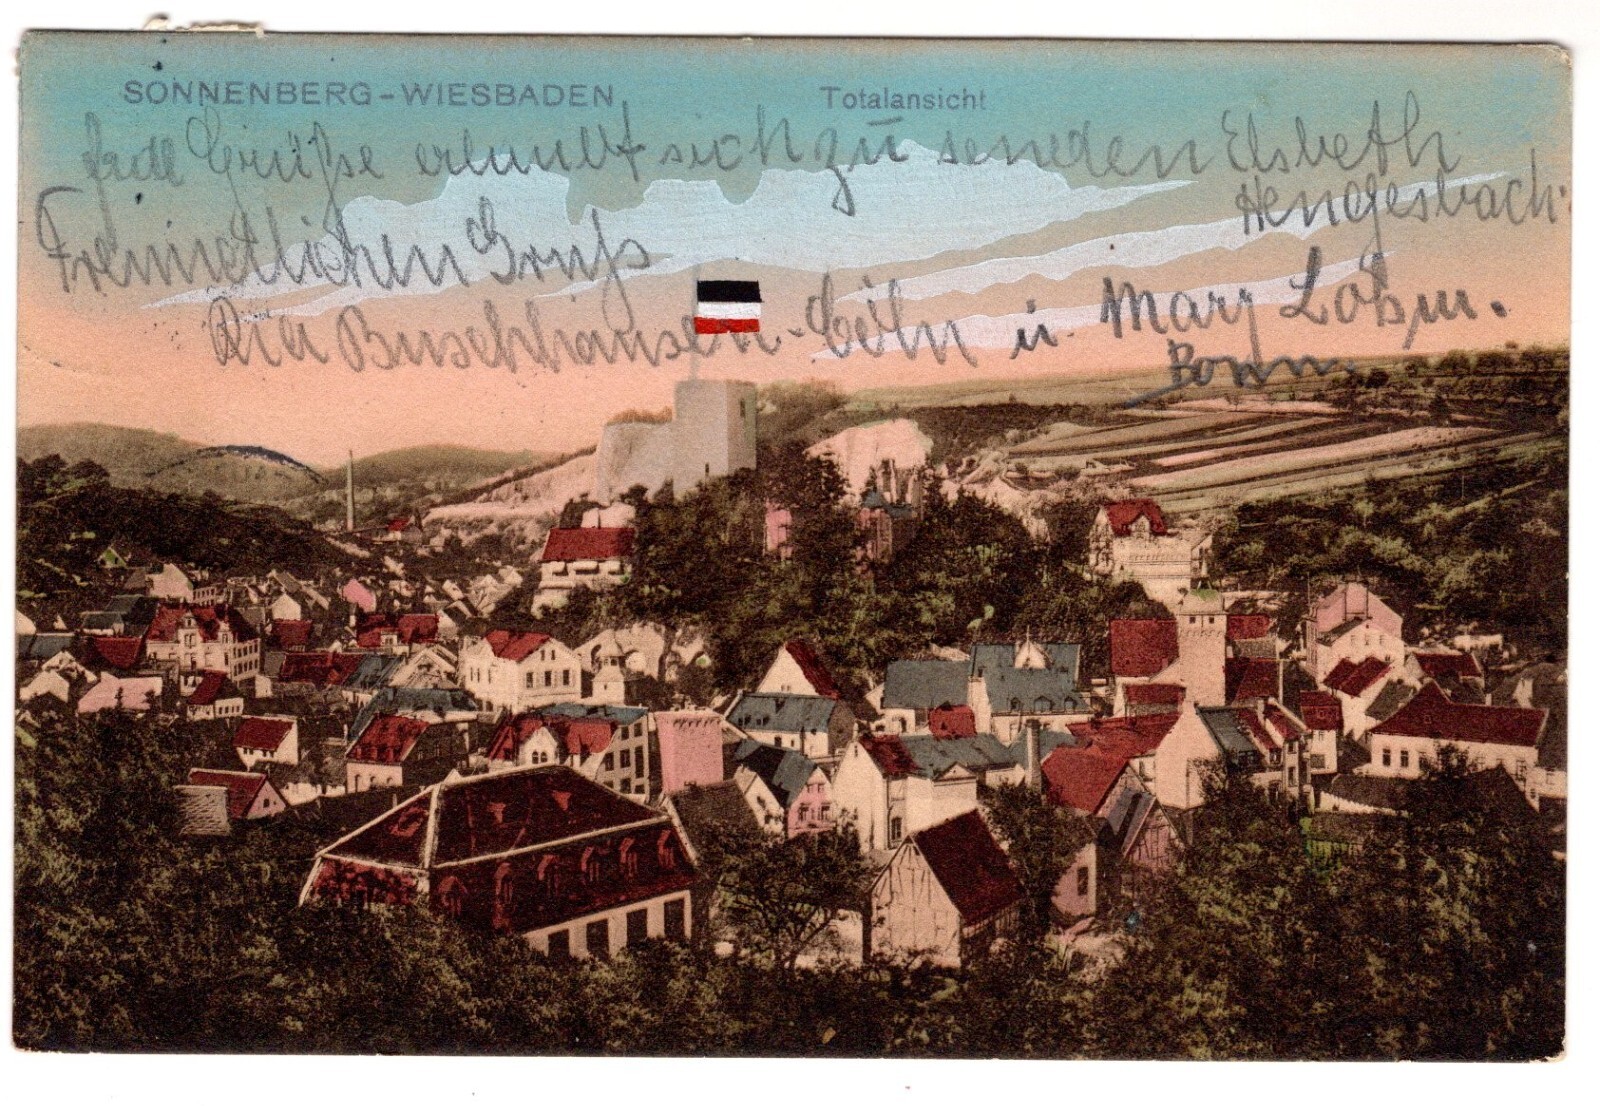 SONNENBERG-WIESBADEN Totalansicht
Grüße erlaubt sich zu senden Elsbeth
Hengesbach.
Freundlichen Gruß
Ria Buschhausen-Cöln u. Mary
Bonn.